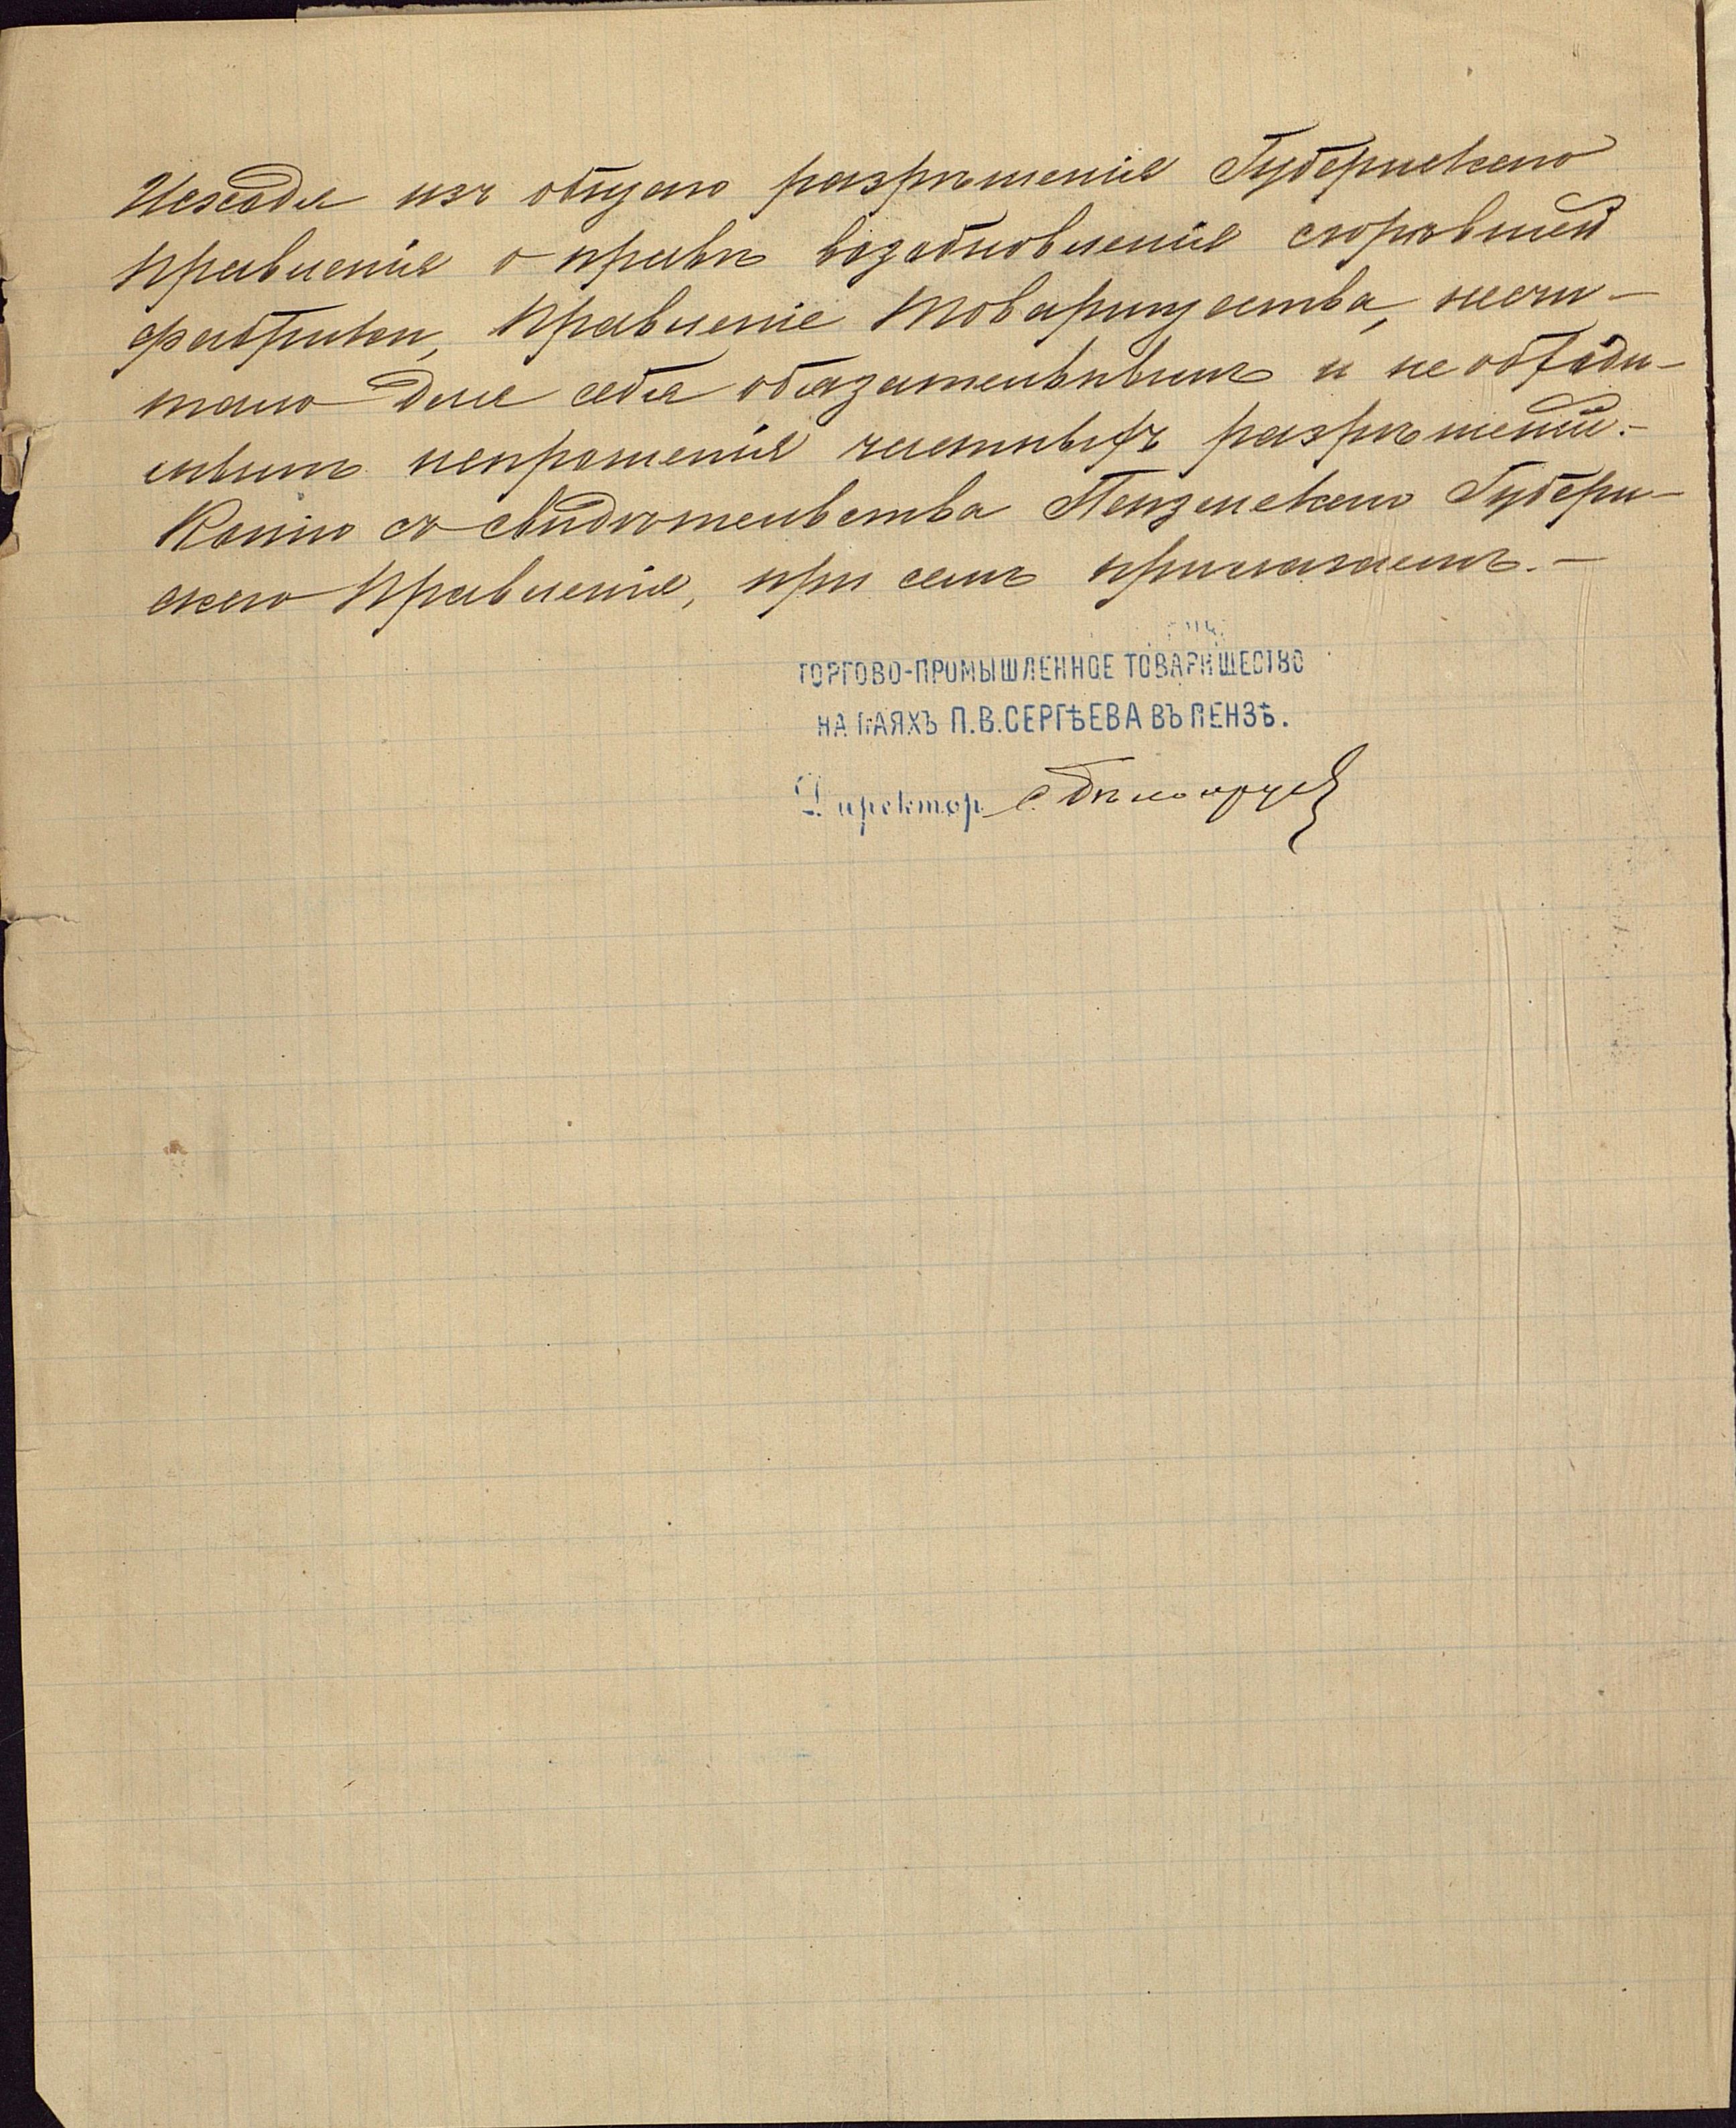 Исходя изъ общаго разрѣшенія Губернскаго
Правленія о правѣ возобновленія сгорѣвшей
фабрики, Правленіе Товарищества, несчи-
тало для себя обязательнымъ и необходи-
мымъ испрошенія частныхъ разрѣшеній.-
Копію съ свидѣтельства Пензенскаго Губерн-
скаго Правленія, при семъ прилагаемъ.-
ТОРГОВО-ПРОМЫШЛЕННОЕ ТОВАРИЩЕСТВО
НА ПАЯХЪ П.В.СЕРГѢЕВА ВЪ ПЕНЗѢ.
Директор